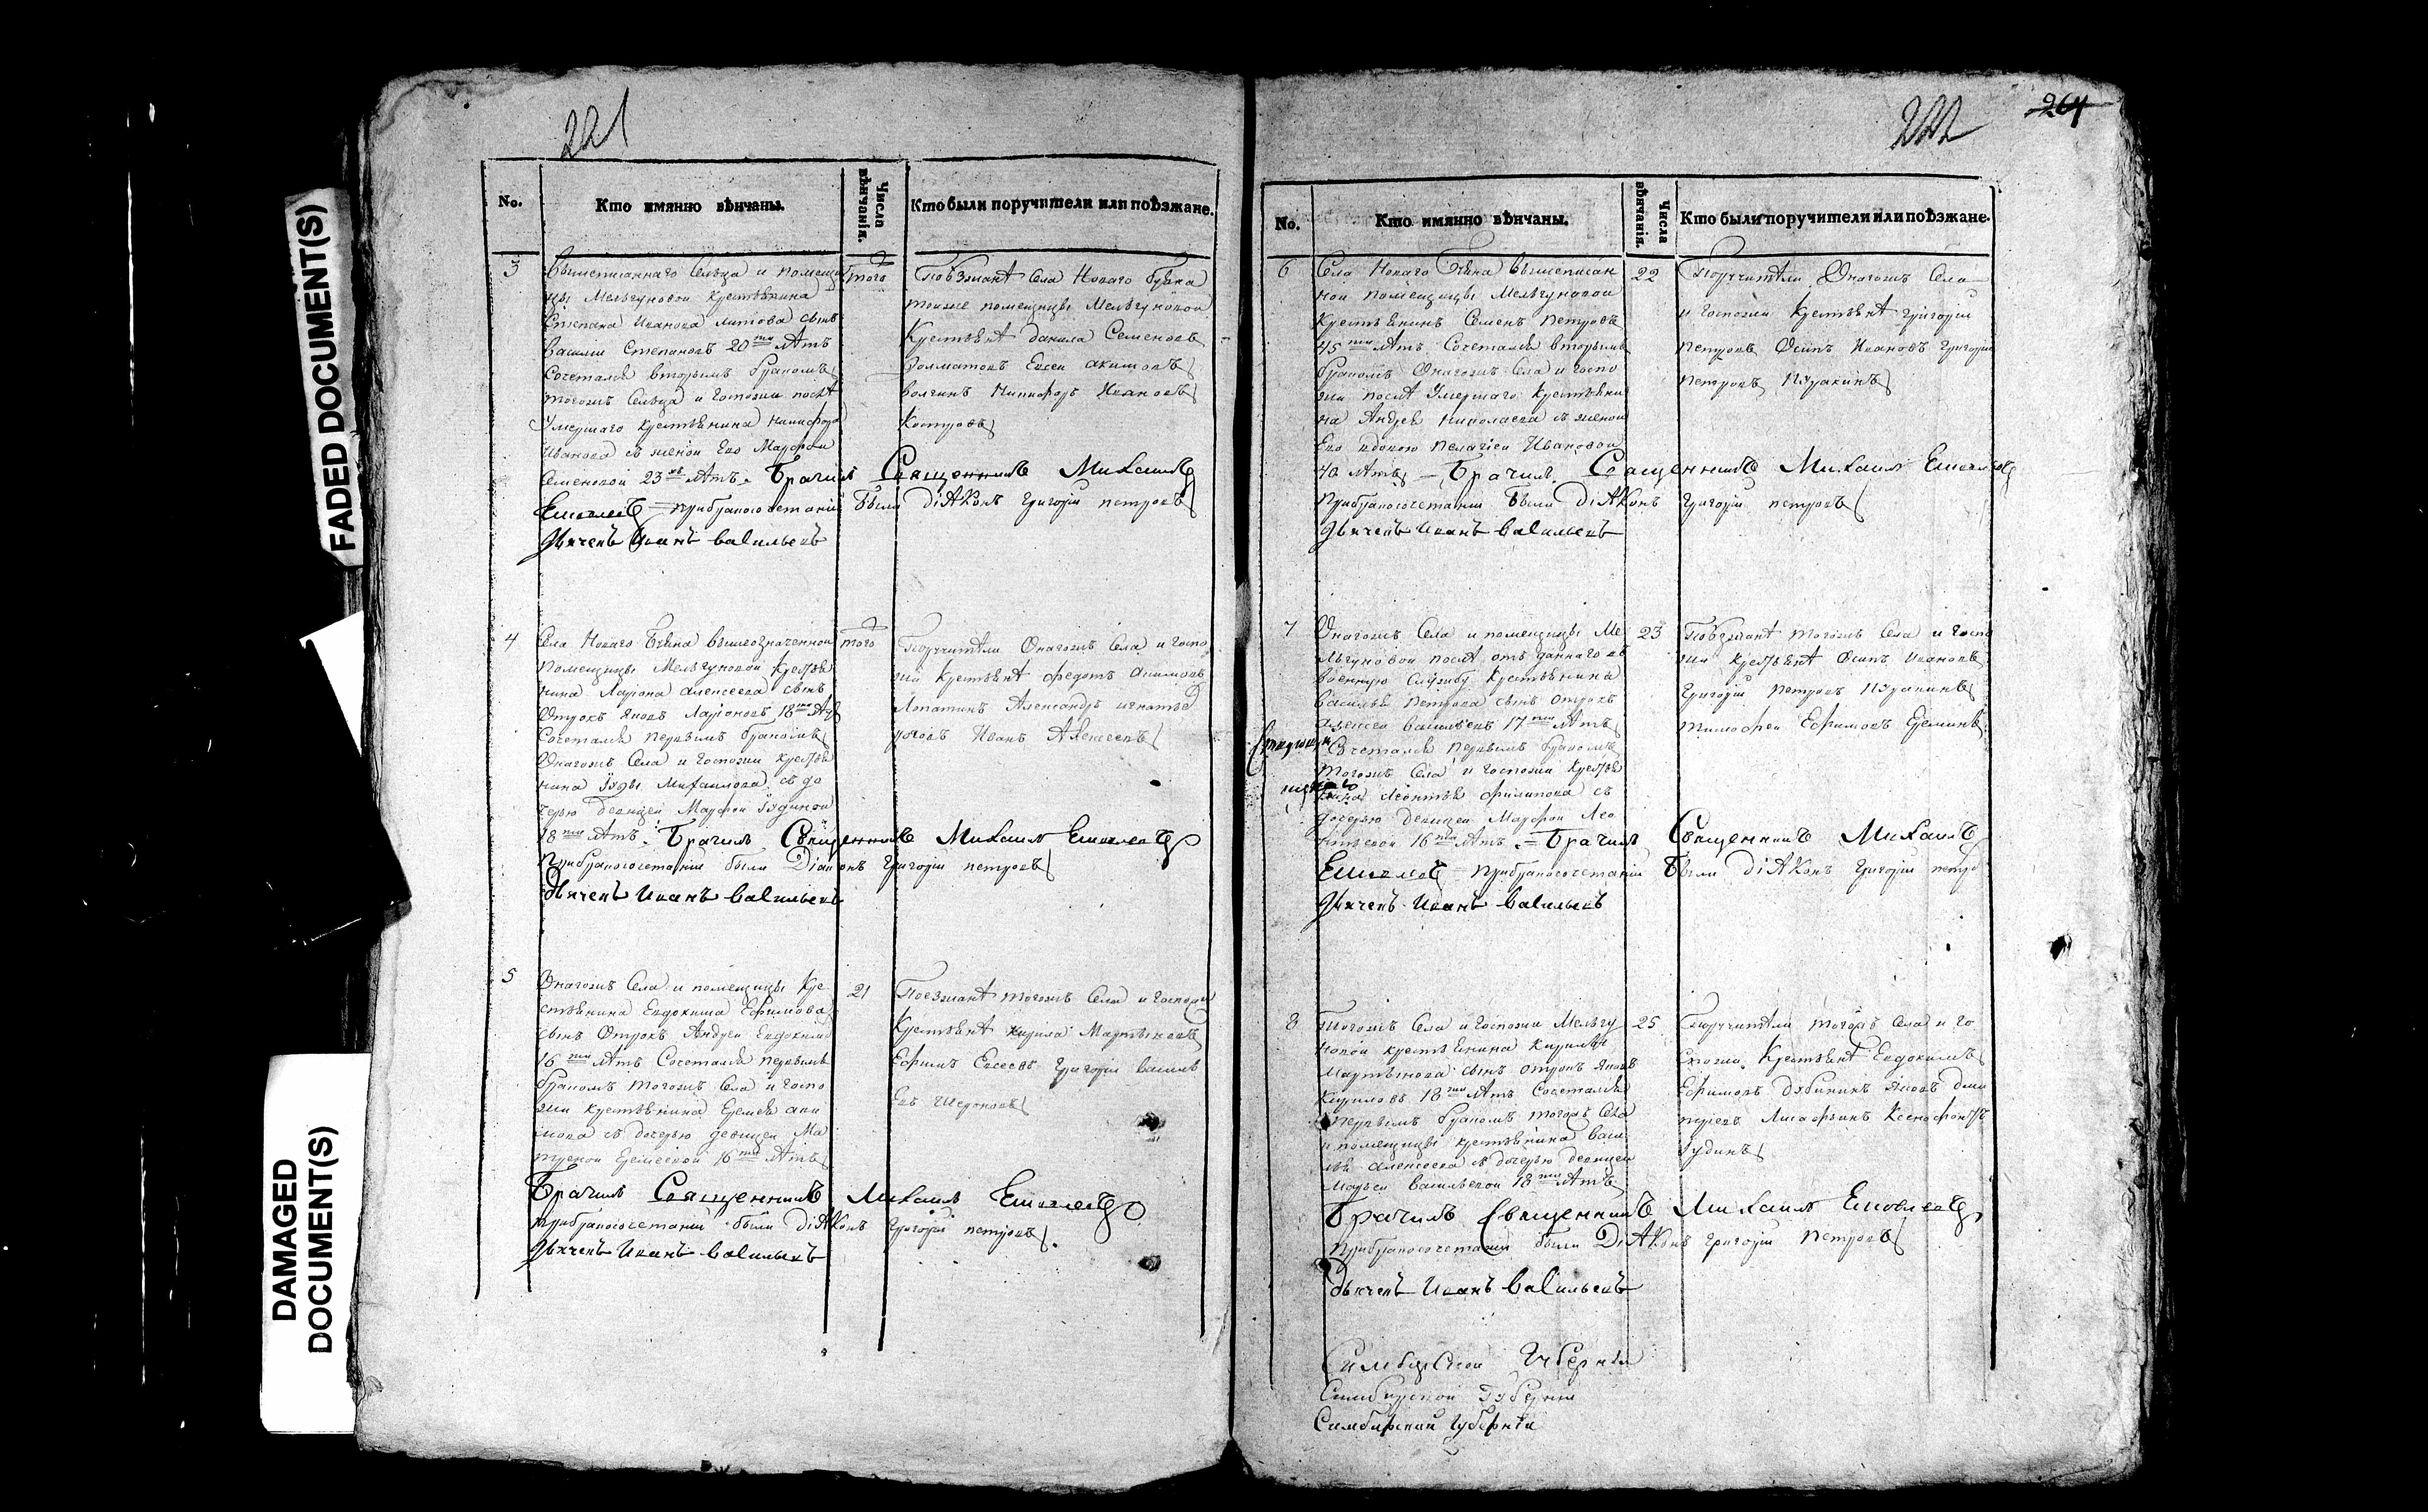 FADED DOCUMENT(S)
DAMAGED
DOCUMENT(S)
221
No.
Кто имянно вѣнчаны.
Числа
вѣнчанія.
Кто были поручители или поѣзжане.
3
вышеписаннаго Сельца и помещи
цы Мельгуновой крестьянина
Степана Иванова сынъ
василии Степановъ 20ти лѣтъ
Сочетался вторымъ бракомъ
тогожъ Сельца и Госпожи послѣ
Умершаго крестьянина Никифора
Иванова съ женой Его Марфой
Семеновой 23хъ лѣтъ. Брачилъ Священникъ Михаилъ
прибракосочетании были діАконъ Григории петровъ
Дьячекъ Иванъ Васильевъ
того
Поѣзжанѣ Села Новаго
тоиже помещицы Мельгуновой
Крестьянѣ данила Семеновъ
Евсеи акимовъ
Никифоръ Ивановъ
Костровъ
4
Села Новаго вышеозначенной
Помещицы Мельгуновой Крестья
нина Лариона алексеева сынъ
Отрокъ Яковъ Ларіоновъ 18ти лѣ
Сочетался первымъ бракомъ
Онагожъ Села и Госпожи Крестья
нина Іуды Михаилова съ до
черью девицей Марфой Іудиной
18ти лѣтъ. Брачилъ Священникъ Михаилъ
Прибракосочетании были Діаконъ Григории петровъ
Дьячекъ Иванъ Васильевъ
того
Поручители Онагожъ Села и Госпо
жи Крестьянѣ федотъ акимовъ
Лопатинъ Александръ игнатьв
Иванъ Алексеевъ
5
Онагожъ Села и помещицы Кре
стьянина Евдокима Ефимова
сынъ Отрокъ Андреи Евдокимв
16ти лѣтъ Сочетался первымъ
бракомъ тогожъ Села и Госпо
жи крестьянина Еремея аки
мова съ дочерью девицей Ма
треной Еремеевой 16ти лѣтъ
Брачилъ Священникъ Михаилъ
прибракосочетании были діАконъ Григории петровъ
Дьячекъ Иванъ Васильевъ
21
Поезжанѣ тогожъ Села и Госпожи
Крестьянѣ кирила Мартыновъ
Ефимъ Евсеевъ Григории васильв
222
264
No.
Кто имянно вѣнчаны.
Числа
вѣнчанія.
Кто были поручители или поѣзжане.
6
Села Новаго вышеписан
ной помещицы Мельгуновой
крестьянинъ Семенъ Петровъ
45ти лѣтъ Сочетался вторымъ
бракомъ Онагожъ Села и госпо
жи послѣ Умершаго Крестьяни
на Андрея Николаева съ женой
Его вдовою Пелагіей Ивановой
40 лѣтъ Брачилъ Священникъ Михаилъ
Прибракосочетании были діАконъ Григории петровъ
Дьячекъ Иванъ Васильевъ
22
Поручители Онагожъ Села
и Госпожи Крестьянѣ Григории
петровъ Осипъ Ивановъ Григории
петровъ
7
Онагожъ Села и помещицы Ме
льгуновой послѣ отъданнаго въ
военную службу Крестьянина
Василья Петрова сынъ отрокъ
Алексеи Васильевъ 17ти лѣтъ
Сочетался первымъ бракомъ
тогожъ Села и Госпожи Крестья
нина Леонтья филипова съ
дочерью девицей Марфой Лео
нтьевой 16ти лѣтъ Брачилъ Священникъ Михаилъ
прибракосочетании были діАконъ Григории петро
Дьячекъ Иванъ Васильевъ
23
Поѣзжанѣ тогожъ Села и Госпо
жи крестьянѣ Осипъ Ивановъ
Григории Петровъ
тимофеи Ефимовъ Ереминъ
8
Тогожъ Села и Госпожи Мельгу
новой крестьянина Кирилы
Мартынова сынъ отрокъ Яковъ
Кириловъ 18ти лѣтъ Сочетался
первымъ бракомъ тогожъ Села
и помещицы крестьянина Васи
лья алексеева съ дочерью девицей
Марьей Васильевой 18ти лѣтъ
Брачилъ Священникъ Михаилъ
прибракосочетании были ДіАконъ Григории Петровъ
Дьячекъ Иванъ Васильевъ
25
Поручители тогожъ Села и Го
спожи Крестьянѣ Евдокимъ
Ефимовъ дубининъ Яковъ дми
треевъ Ксенофонтъ
Іудинъ
Симбирской Губерніи
Симбирской Губерніи
Симбирской Губерніи